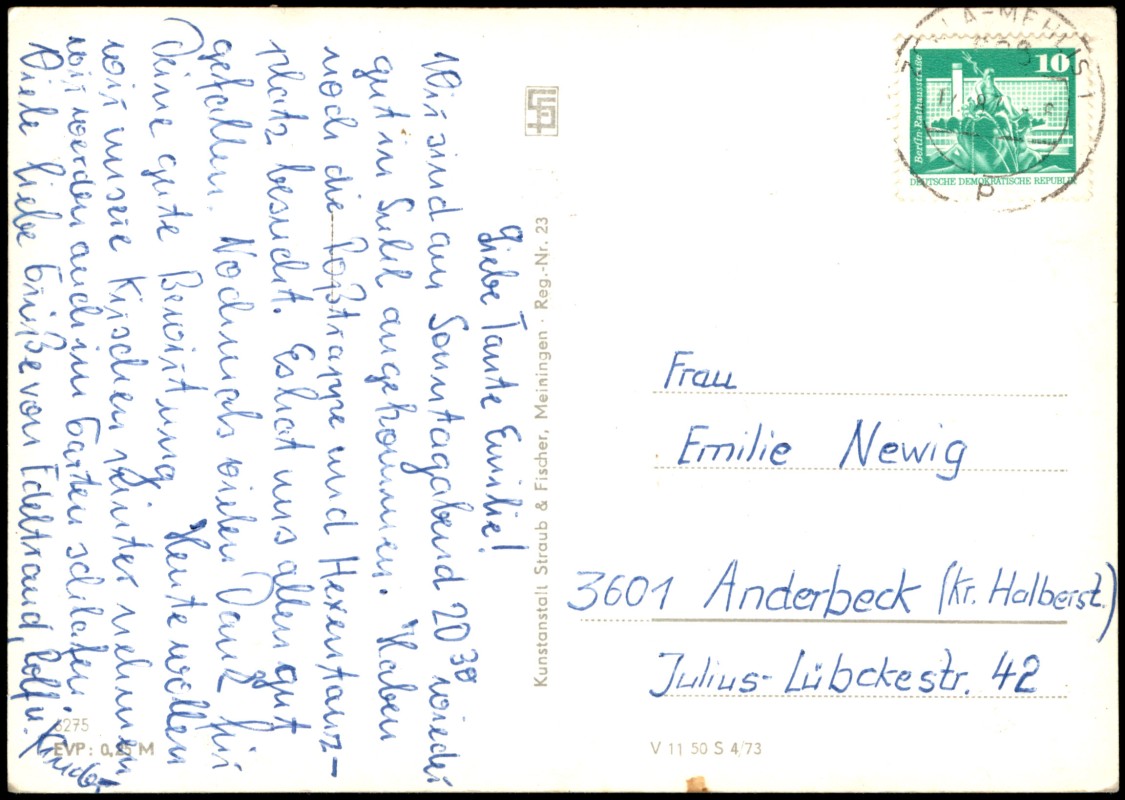 Liebe Tante Emilie!
Wir sind am Sonntagabend 20³⁰ wieder
gut in Suhl angekommen. Haben
noch die Roßtrappe und Hexentanz-
platz besucht. Es hat uns allen gut
gefallen. Nochmals vielen Dank für
Deine gute Bewirtung. Heute wollen
wir unsere Kirschen runter nehmen
wir werden auch im Garten schlafen.
Viele liebe Grüße von Edeltraud, Rolf u. Kinder
6275
EVP: 0,25 M
Kunstanstalt Straub & Fischer, Meiningen · Reg.-Nr. 23
ZELLA-MEHLIS 1
10
Berlin·Rathausstraße
DEUTSCHE DEMOKRATISCHE REPUBLIK
p
Frau
Emilie Newig
3601 Anderbeck (Kr. Halberst.)
Julius-Lübckestr. 42
V 11 50 S 4/73